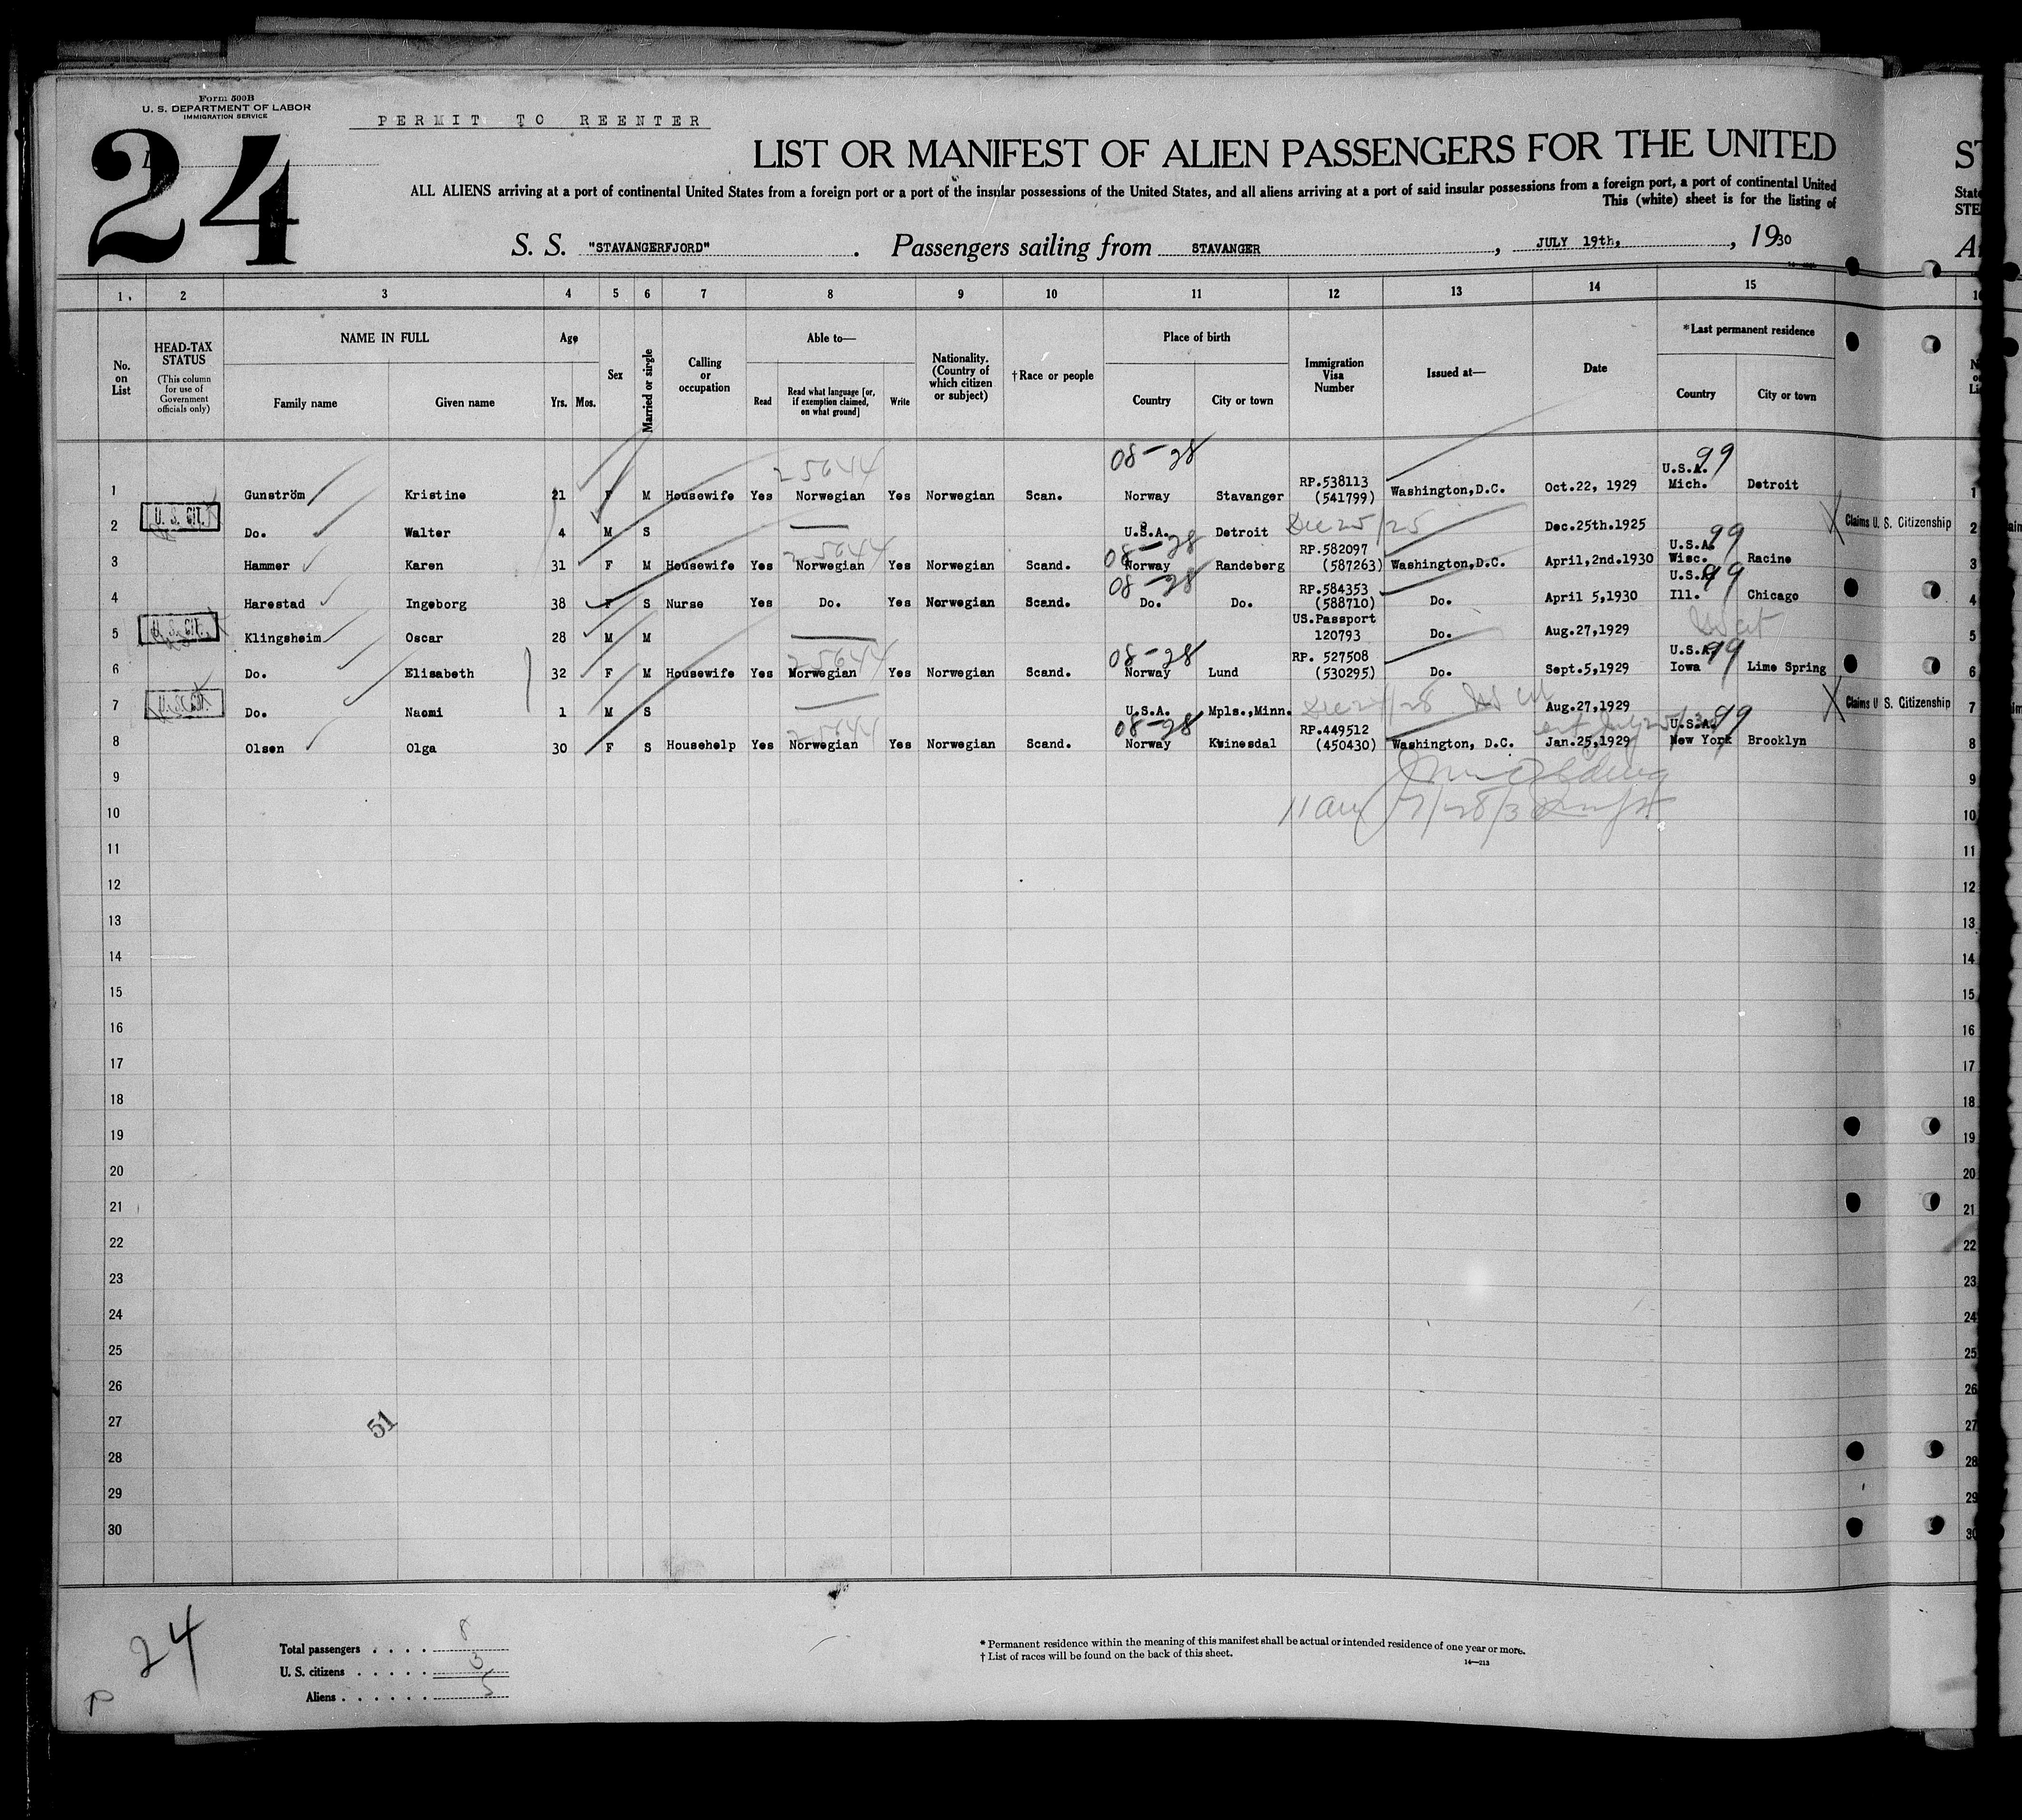 Form 500B
U. S. DEPARTMENT OF LABOR
IMMIGRATION SERVICE
24
PERMIT TO REENTER
LIST OR MANIFEST OF ALIEN PASSENGERS FOR THE UNITED
ST
ALL ALIENS arriving at a port of continental United States from a foreign port or a port of the insular possessions of the United States, and all aliens arriving at a port of said insular possessions from a foreign port, a port of continental United
State
This (white) sheet is for the listing of
STE
S. S. "STAVANGERFJORD". Passengers sailing from STAVANGER, JULY 19th, 1930
1 2 3 4 5 6 7 8 9 10 11 12 13 14 15
No. on List
HEAD-TAX STATUS (This column for use of Government officials only)
NAME IN FULL
Family name Given name
Age
Yrs. Mos.
Sex
Married or single
Calling or occupation
Able to—
Read
Read what language [or, if exemption claimed, on what ground]
Write
Nationality. (Country of which citizen or subject)
†Race or people
Place of birth
Country City or town
Immigration Visa Number
Issued at—
Date
*Last permanent residence
Country City or town
25644 08-28 99
1 Gunström Kristine 21 F M Housewife Yes Norwegian Yes Norwegian Scan. Norway Stavanger RP.538113 (541799) Washington,D.C. Oct.22, 1929 U.S.A. Mich. Detroit 1
2 U. S. CIT. Do. Walter 4 M S U.S.A. Detroit Dec 25/25 Dec.25th.1925 Claims U. S. Citizenship 2
25644 08-28 99
3 Hammer Karen 31 F M Housewife Yes Norwegian Yes Norwegian Scand. Norway Randeberg RP.582097 (587263) Washington,D.C. April,2nd.1930 U.S.A. Wisc. Racine 3
08-28 99
4 Harestad Ingeborg 38 F S Nurse Yes Do. Yes Norwegian Scand. Do. Do. RP.584353 (588710) Do. April 5,1930 U.S.A. Ill. Chicago 4
5 U. S. CIT. Klingsheim Oscar 28 M M US.Passport 120793 Do. Aug.27,1929 5
25644 08-28 99
6 Do. Elisabeth 32 F M Housewife Yes Norwegian Yes Norwegian Scand. Norway Lund RP. 527508 (530295) Do. Sept.5,1929 U.S.A. Iowa Lime Spring 6
7 U. S. CIT. Do. Naomi 1 M S U.S.A. Mpls.,Minn. Aug.27,1929 Claims U S. Citizenship 7
25644 08-28 99
8 Olsen Olga 30 F S Househelp Yes Norwegian Yes Norwegian Scand. Norway Kvinesdal RP.449512 (450430) Washington, D.C. Jan.25,1929 U.S.A. New York Brooklyn 8
9 9
10 11 am 7/28/30 10
11 11
12 12
13 13
14 14
15 15
16 16
17 17
18 18
19 19
20 20
21 21
22 22
23 23
24 24
25 25
26 26
27 51 27
28 28
29 29
30 30
24
Total passengers . . . . 8
U. S. citizens . . . . . 3
Aliens . . . . . . 5
* Permanent residence within the meaning of this manifest shall be actual or intended residence of one year or more.
† List of races will be found on the back of this sheet.
14—213